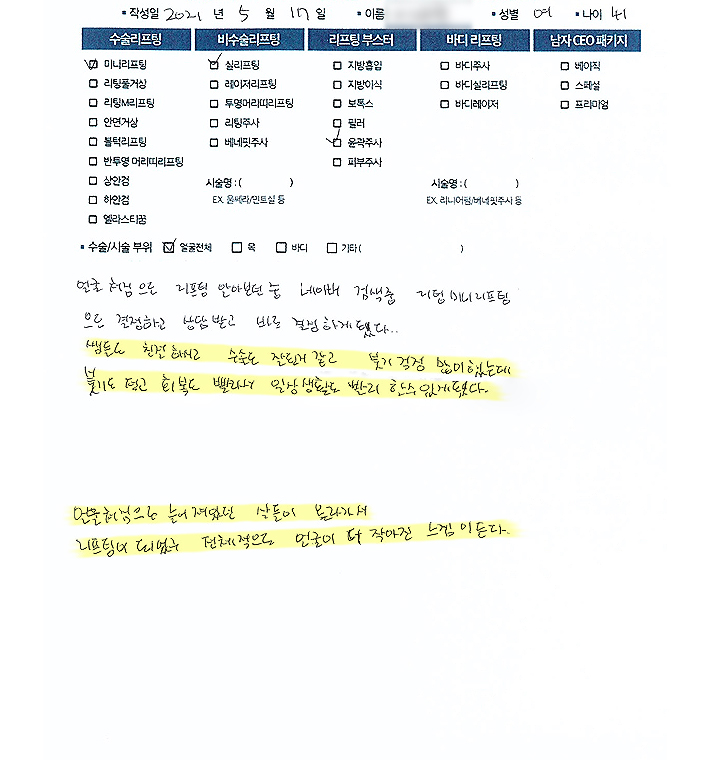 ▪작성일 2021 년 5 월 17 일 ▪이름 ▪성별 여 ▪나이 41
수술리프팅 비수술리프팅 리프팅 부스터 바디 리프팅 남자 CEO 패키지
☑ 미니리프팅 ☑ 실리프팅 □ 지방흡입 □ 바디주사 □ 베이직
□ 리팅풀거상 □ 레이저리프팅 □ 지방이식 □ 바디실리프팅 □ 스페셜
□ 리팅M리프팅 □ 투영머리띠리프팅 □ 보톡스 □ 바디레이저 □ 프리미엄
□ 안면거상 □ 리팅주사 □ 필러
□ 볼턱리프팅 □ 베네핏주사 ☑ 윤곽주사
□ 반투영 머리띠리프팅 □ 피부주사
□ 상안검 시술명 : ( ) 시술명 : ( )
□ 하안검 EX. 울쎄라/민트실 등 EX. 리니어펌/베네핏주사 등
□ 엘라스티꿈
▪수술/시술 부위 ☑ 얼굴전체 □ 목 □ 바디 □ 기타 ( )
얼굴 처짐으로 리프팅 알아보던 중 네이버 검색중 리팅미니리프팅
으로 결정하고 상담 받고 바로 결정하게 됐다..
쌤들도 친절하시고 수술도 잘된거 같고 붓기 걱정 많이했는데
붓기도 적고 회복도 빨라서 일상생활도 빨리 할수있게됐다.
얼굴처짐으로 늘어져있던 살들이 올라가서
리프팅이 되었고 전체적으로 얼굴이 더 작아진 느낌이든다.